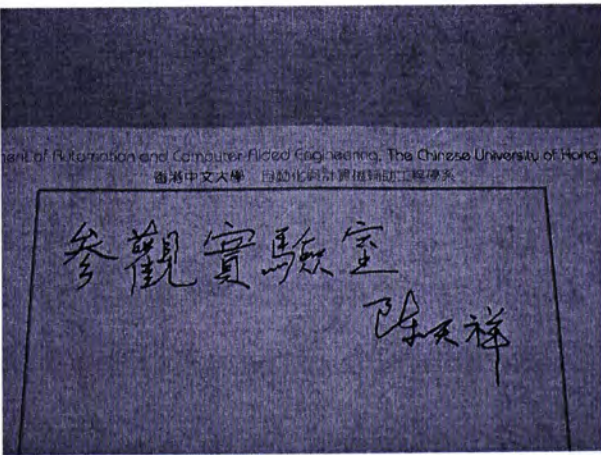 ment of Automation and Computer-Aided Engineering, The Chinese University of Hong
香港中文大學 自動化與計算機輔助工程學系
參觀實驗室
陈天祥